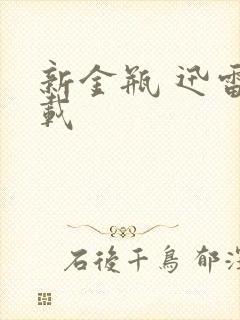 新金瓶 迅雷
載
石後千鳥 郁